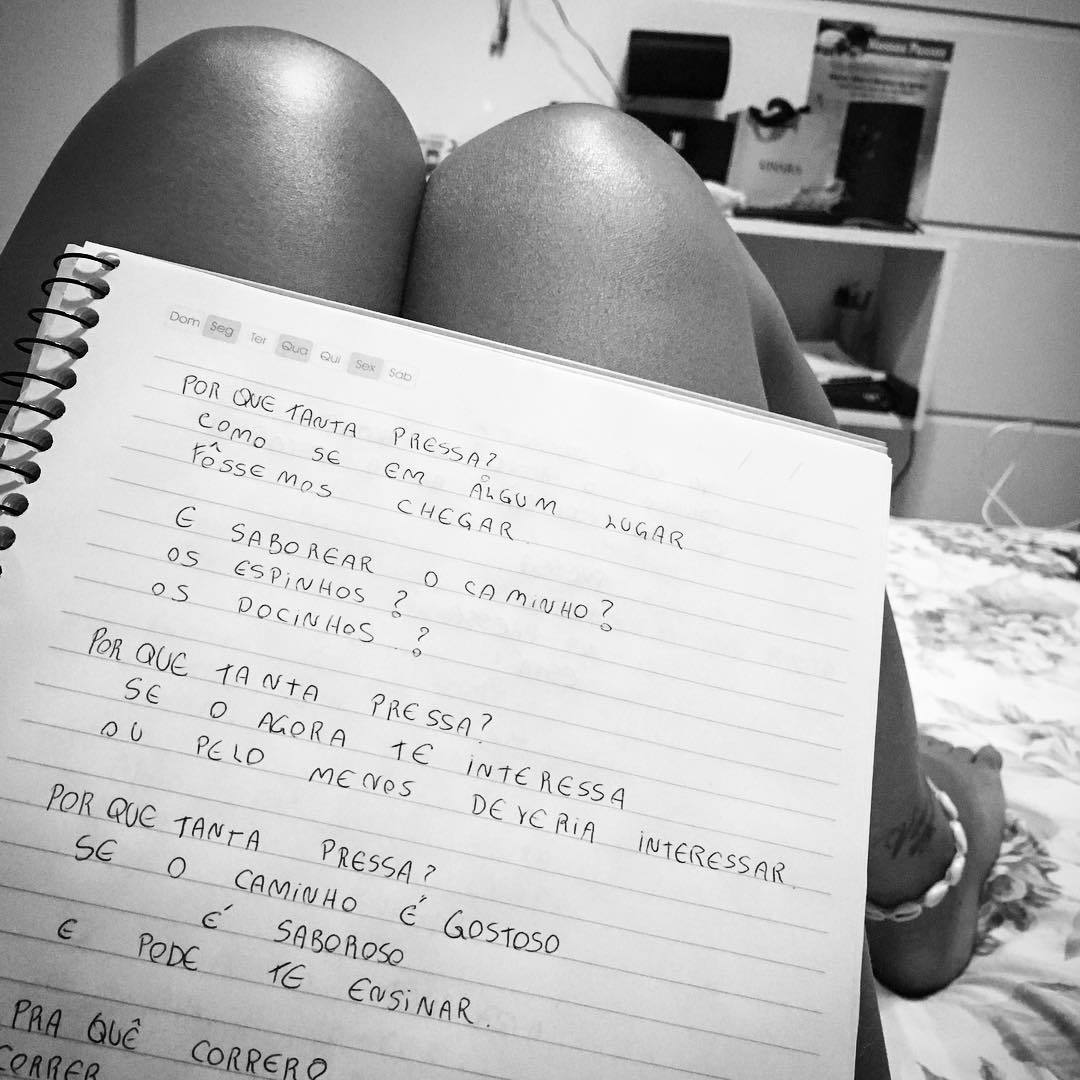 Dom Seg Ter Qua Qui Sex Sab
POR QUE TANTA PRESSA?
COMO SE EM ALGUM LUGAR
FÔSSEMOS CHEGAR
E SABOREAR O CAMINHO?
OS ESPINHOS?
OS DOCINHOS?
POR QUE TANTA PRESSA?
SE O AGORA TE INTERESSA
OU PELO MENOS DEVERIA INTERESSAR.
POR QUE TANTA PRESSA?
SE O CAMINHO É GOSTOSO
É SABOROSO
E PODE TE ENSINAR.
PRA QUÊ CORRER?
CORRER